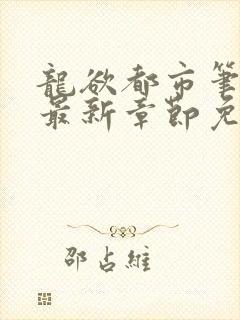 龍欲都市筆
最新章節免
邵占維